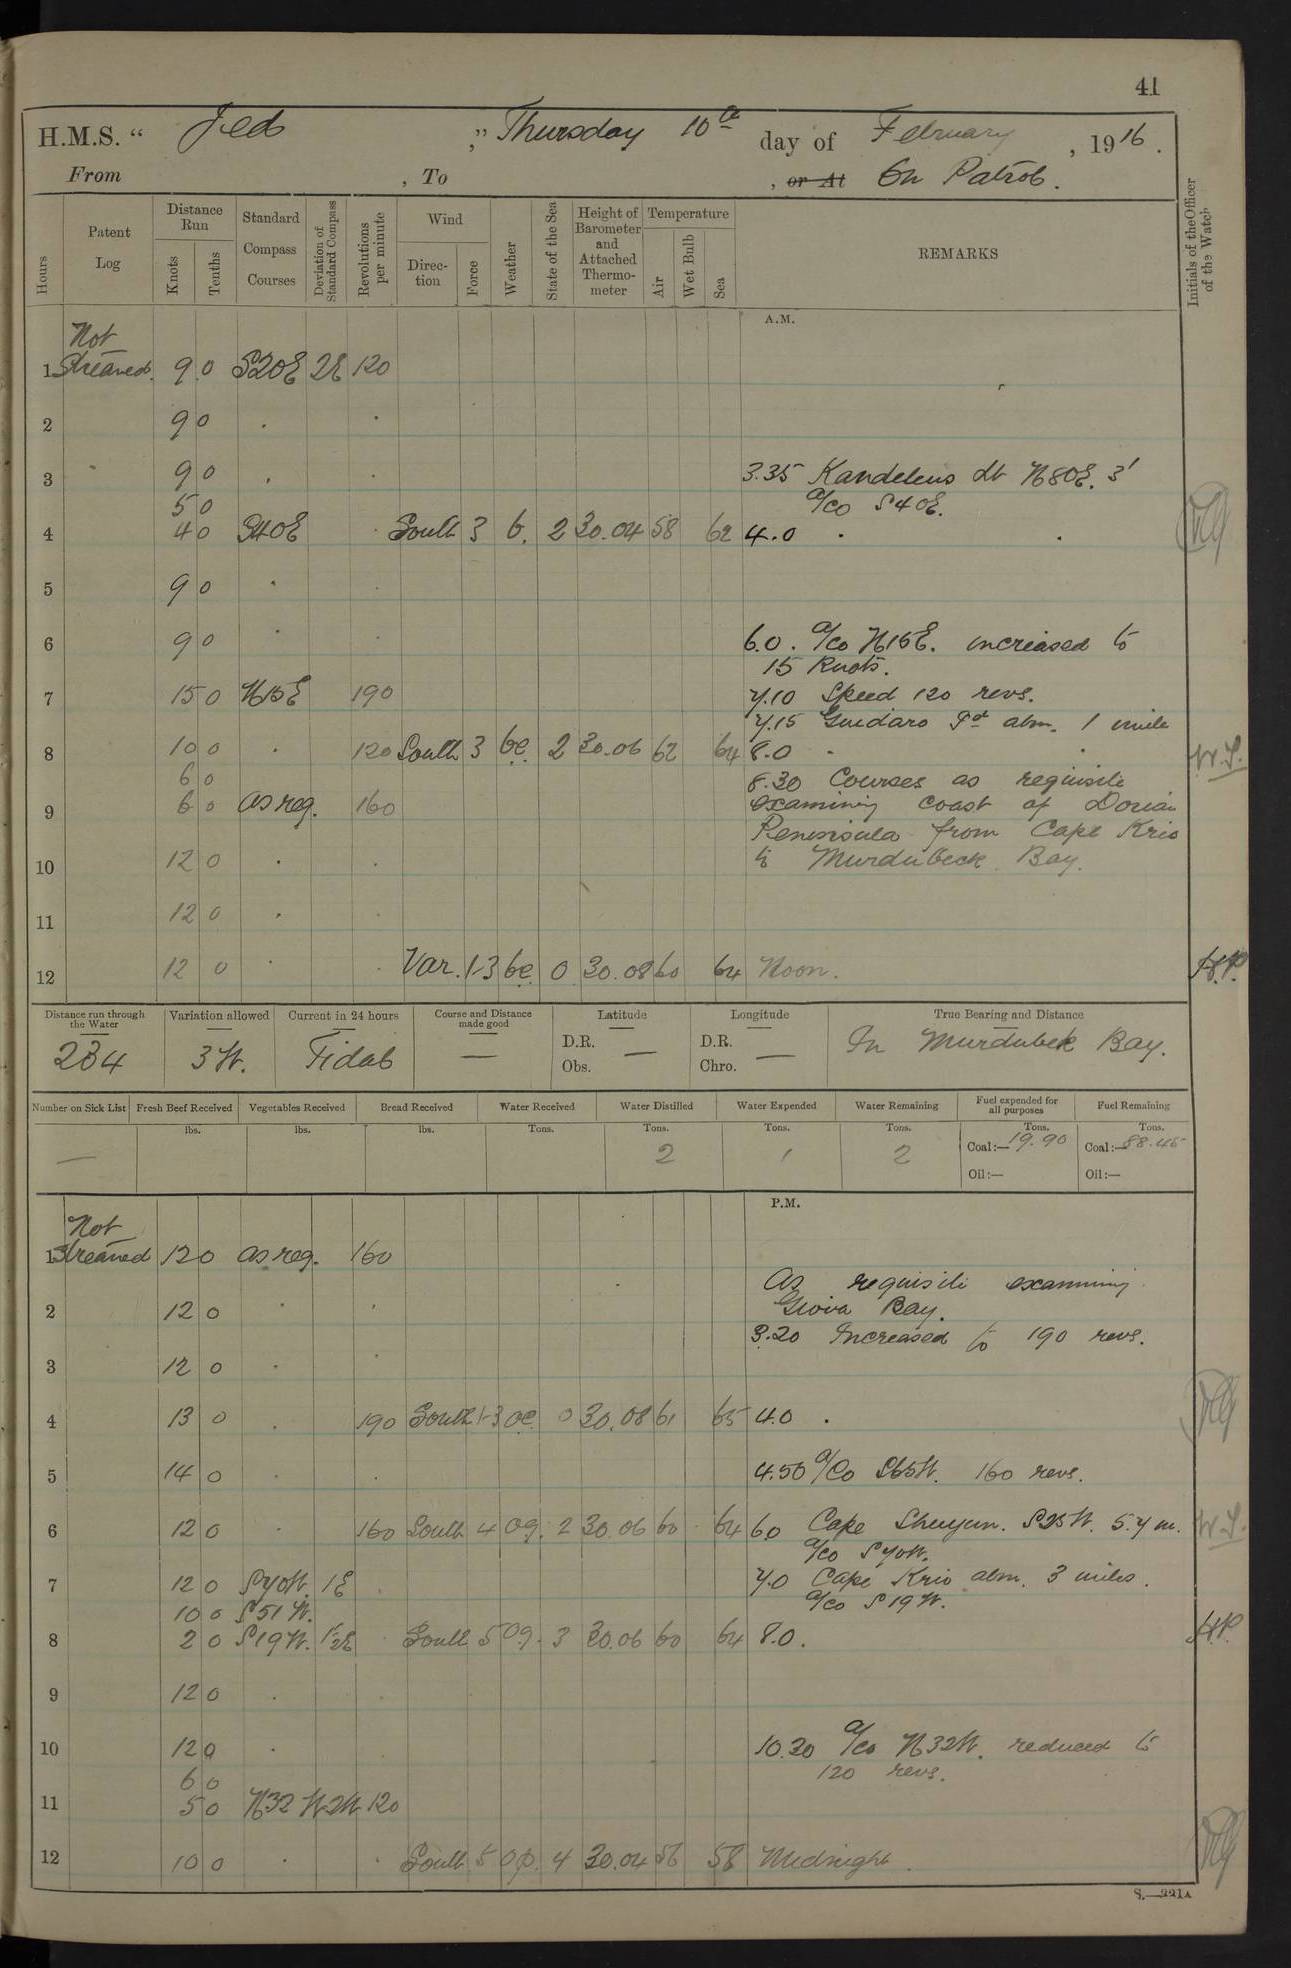 41
H.M.S. “ Jed ,” Thursday 10th day of February , 1916 .
From , To , or At On Patrol.
Hours
Patent Log
Distance Run
Knots
Tenths
Standard Compass Courses
Deviation of Standard Compass
Revolutions per minute
Wind
Direction
Force
Weather
State of the Sea
Height of Barometer and Attached Thermometer
Temperature
Air
Wet Bulb
Sea
REMARKS
Initials of the Officer of the Watch
A.M.
Not
1 Streamed. 9 0 S20E 2E 120
2 9 0 . .
3 9 0 . . 3.35 Kandeleus Lt N80E. 3'
5 0 a/co S40E.
4 4 0 S40E . South 3 b. 2 30.04 58 62 4.0 . .
5 9 0 . .
6 9 0 . . 6.0. a/co N15E. increased to
15 Knots.
7 15 0 N15E 190 7.10 Speed 120 revs.
7.15 Guidaro Pt abm. 1 mile
8 10 0 . 120 South 3 bc 2 30.06 62 64 8.0 . W.S.
6 0 8.30 Courses as requisite
9 6 0 as req. 160 examining coast of Dorian
Peninsula from Cape Krio
10 12 0 . . to Murdubeck Bay.
11 12 0 . .
12 12 0 . . Var. 1-3 bc 0 30.08 60 64 Noon. H.P.
Distance run through the Water
234
Variation allowed
3W.
Current in 24 hours
Tidal
Course and Distance made good
—
Latitude
D.R.
Obs. —
Longitude
D.R.
Chro. —
True Bearing and Distance
In Murdubek Bay.
Number on Sick List Fresh Beef Received Vegetables Received Bread Received Water Received Water Distilled Water Expended Water Remaining Fuel expended for all purposes Fuel Remaining
lbs. lbs. lbs. Tons. Tons. Tons. Tons. Tons. Tons.
— 2 1 2 Coal:— 19.90 Coal:— 88.45
Oil:— Oil:—
P.M.
Not
1 Streamed 12 0 as req. 160
As requisite examining
2 12 0 . . Giova Bay.
3.20 Increased to 190 revs.
3 12 0 . .
4 13 0 . 190 South 1-3 oc. 0 30.08 61 65 4.0 .
5 14 0 . . 4.50 a/Co S65W. 160 revs.
6 12 0 . 160 South 4 og. 2 30.06 60 64 6.0 Cape Shuyun. S25W. 5.7 m. W.S.
a/co S70W.
7 12 0 S70W. 1E . 7.0 Cape Krio abm. 3 miles.
10 0 S51W. a/co S19W.
8 2 0 S19W. 1/2E . South 5 og. 3 30.06 60 64 8.0. H.P.
9 12 0 . .
10 12 0 . 10.30 a/co N32W. reduced to
6 0 120 revs.
11 5 0 N32W 2W 120
12 10 0 . . South 5 op. 4 30.04 56 58 Midnight.
S.—221A